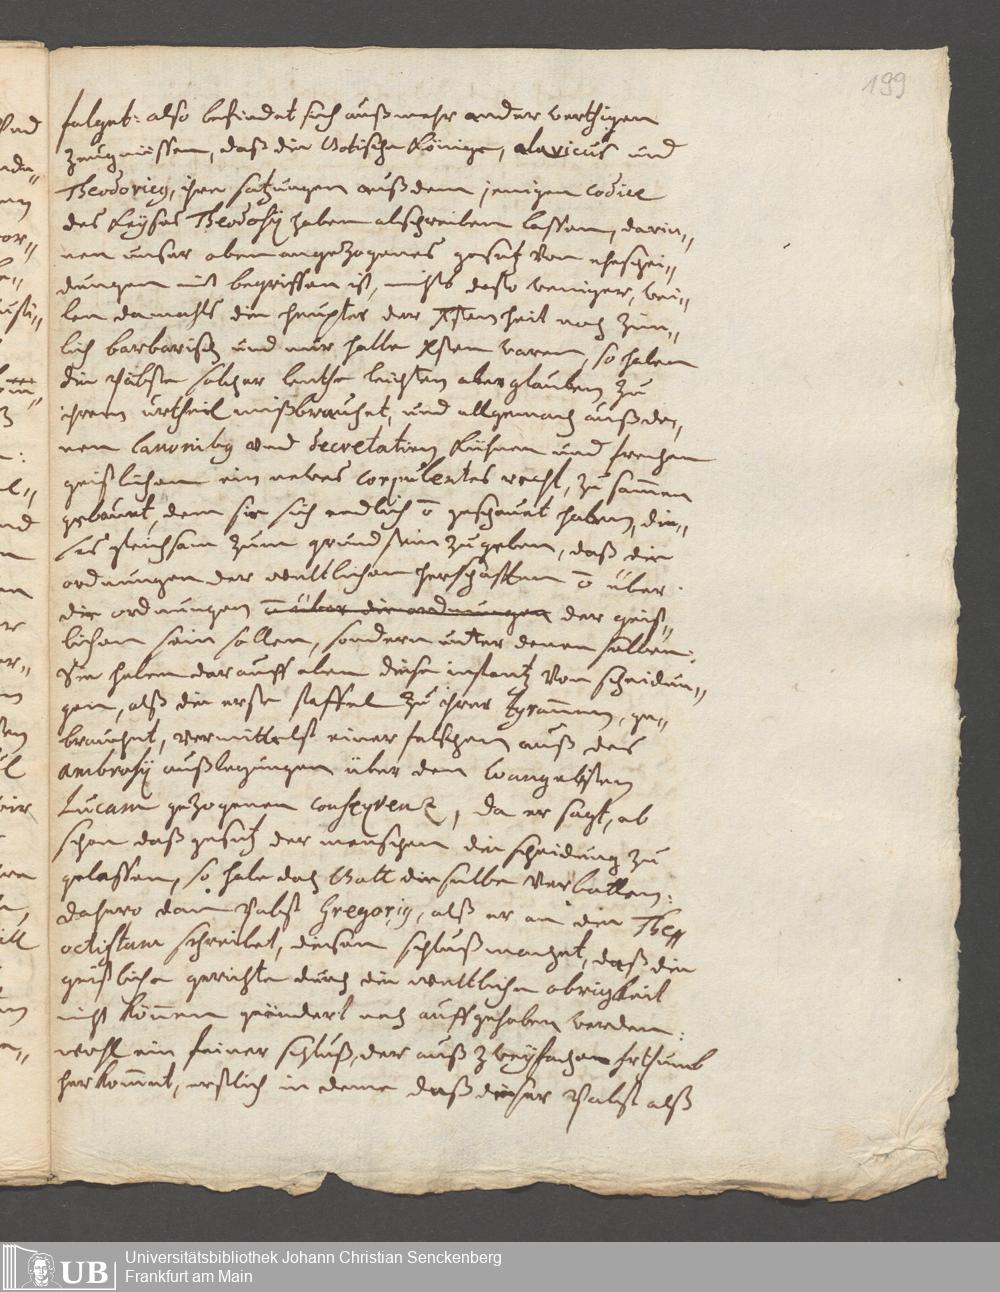 199
folget: also befindet sich auß mehr ander werthigen
Zeugnüssen, daß die Gotische Könige, Alaricus und
Theodoricus, ihre satzungen auß dem jenigen codice
des Keysers Theodosij haben abschreiben lassen, darin=
nen unser obenangezogenes gesetz von eheschei=
dungen mit begriffen ist, nichts desto weniger, wei=
len damahls die häupter der Xstenheit noch Zim=
lich barbarisch und nur halbe Xsten waren, so haben
die Päbste solcher leuthe leichten aberglauben Zu
ihrem urtheil mißbrauchet, und allgemach auß de=
nen Canonibus und decretation kühnen und frechen
geistlichen ein newes corpulentes recht, Zusam̄en
gebauet, dem sie sich endlich ō gescheuet haben, die=
ses gleichsam Zum grundstein Zugeben, daß die
ordnungen der weltlichen herrschafften ō über
die ordnungen ō über die ordnungen der geist=
lichen sein sollen, sondern unter denen selben:
Sie haben darauff eben diese instantz von scheidun=
gen, alß die erste staffel Zu ihrer Tyrannen, ge=
brauchet, vermittelst einer falschen auß des
Ambrosij außlegungen über den Evangelisten
Lucam gezogenen consequentz, da er sagt, ob
schon daß gesetz der menschen die scheidung zu
gelassen, so habe doch Gott dieselbe verbotten:
dahero dan Pabst Gregorius, alß er an die The=
octistam schreibet, diesen schluß machet, daß die
geistliche gerichte durch die weltliche obrigkeit
nicht können geändert noch auffgehoben werden:
wohl ein feiner schluß, der auß zweyfachen Irthumb
herkom̄et, erstlich in deme daß dieser Pabst alß
Universitätsbibliothek Johann Christian Senckenberg
Frankfurt am Main
UB